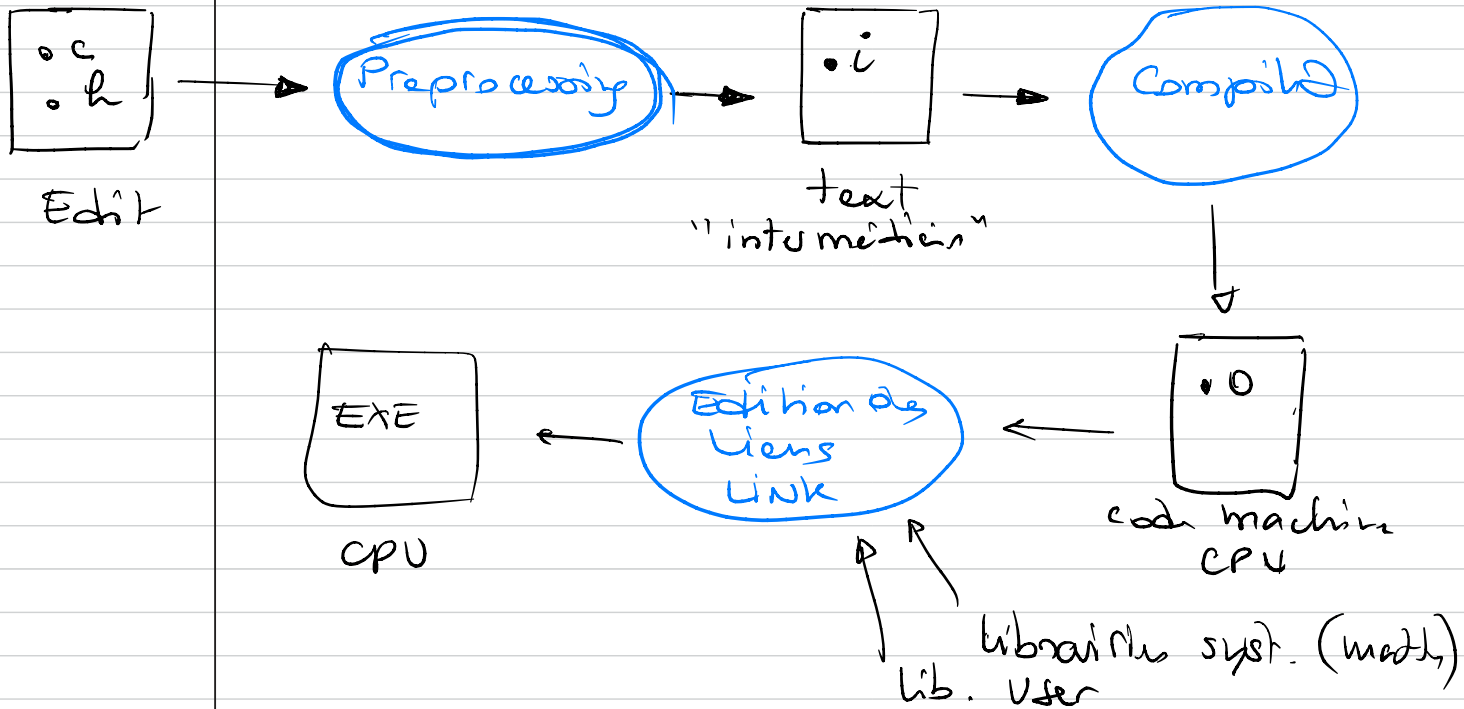 .c
.h
Edit
Preprocessing
.i
text
"intermédiair"
Compilat
.o
code machine
CPU
Edition des
Liens
LINK
EXE
CPU
Librairies syst. (math)
Lib. User